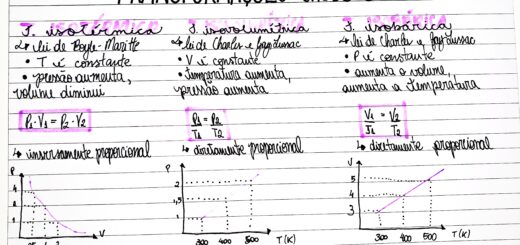 T. isotérmica
↳ lei de Boyle-Mariotte
• T é constante
• pressão aumenta,
volume diminui
P₁ · V₁ = P₂ · V₂
↳ inversamente proporcional
P
4
2
1
V
T. isovolumétrica
↳ lei de Charles e Gay-Lussac
• V é constante
• temperatura aumenta,
pressão aumenta
P₁ = P₂
T₁ T₂
↳ diretamente proporcional
P
2
1,5
1
300 400 500 T(K)
T. isobárica
↳ lei de Charles e Gay-Lussac
• P é constante
• aumenta o volume,
aumenta a temperatura
V₁ = V₂
T₁ T₂
↳ diretamente proporcional
V
5
4
3
300 400 500 T(K)